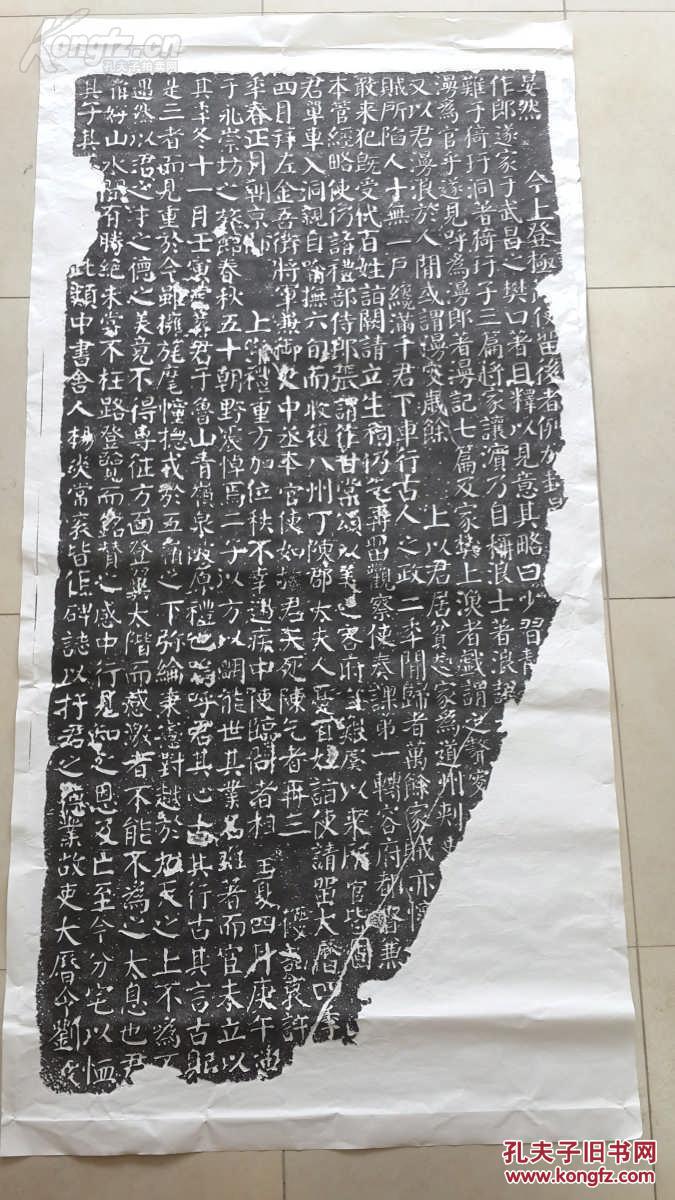 晏然 今上登極 後留後者例加
作郎遂家于武昌之樊口著自釋以見意其略曰少習靜
難于猗玗洞著猗玗子三篇將家讓濱乃自稱浪士著浪說
漫為官乎遂見呼為漫郎著漫記七篇及家樊上漁者戲謂之聱叟
又以君漫浪於人間或謂漫叟歲餘 上以君居貧起家為道州刺
賊所陷人十無一戶纔滿千君下車行古人之政二年間歸者萬餘家賊亦懷
敢来犯既受代百姓詣闕請立生祠仍乞再留觀察使奏課第一轉容府都督兼
本管經略使仍請禮部侍郎張謂作甘棠頌以美之容府自艱虞以来所官皆
君單車入洞親自喻撫六旬而收復八州丁陳郡太夫人憂百姓詣使請留大曆四年
四月拜左金吾衛將軍兼御史中丞本官使如故君矢死陳乞者再三
年春正月朝京師 上 禮重方加位秩不幸遇疾中使臨問者相 夏四月庚午
于永崇坊之旅館春秋五十朝野震悼焉二子以方以明能世其業 著而官未立以
其年冬十一月壬寅 葬君于魯山青嶺泉 原禮也嗚呼君其心古其行古其言古躬
是三者而見重於今雖擁旄麾幢摠戎於五嶺之下弥綸秉憲對越於九天之上不為不
遇然以君之才之德之美竟不得專征方面登翼太階而感激者不能不為之太息也君
雅好山水聞有勝絕未嘗不枉路登覽而銘贊之感中行見知之恩及亡至今分宅以恤
其子其 此類中書舍人楊炎常袞皆作碑誌以抒君之德業故吏大曆令劉
孔夫子旧书网
Kongfz.cn
孔夫子旧书网
www.kongfz.com